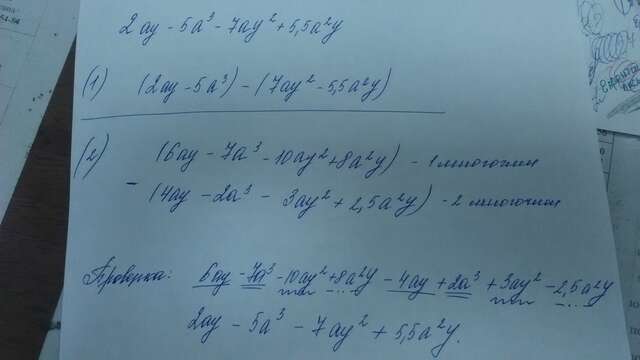 2ay - 5a³ - 7ay² + 5,5a²y
(1) (2ay - 5a³) - (7ay² - 5,5a²y)
(2) (6ay - 7a³ - 10ay² + 8a²y) - 1 многочлен
- (4ay - 2a³ - 3ay² + 2,5a²y) - 2 многочлен
Проверка: 6ay - 7a³ - 10ay² + 8a²y - 4ay + 2a³ + 3ay² - 2,5a²y
2ay - 5a³ - 7ay² + 5,5a²y.